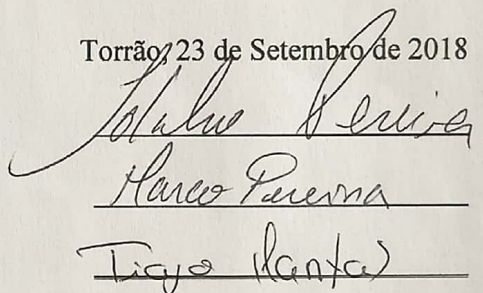 Torrão, 23 de Setembro de 2018
Pereira
Marco Pereira
Tiago